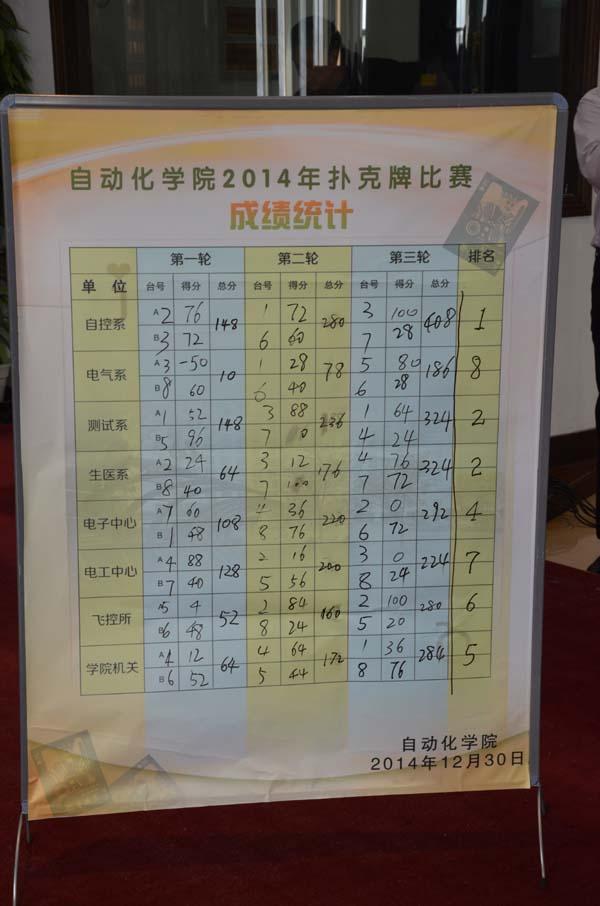 自动化学院2014年扑克牌比赛
成绩统计
单位 第一轮 第二轮 第三轮 排名
台号 得分 总分 台号 得分 总分 台号 得分 总分
自控系 A2 76 148 1 72 280 3 100 408 1
B3 72 6 60 7 28
电气系 A3 -50 10 1 28 78 5 80 186 8
B8 60 6 40 6 28
测试系 A1 52 148 3 88 236 1 64 324 2
B5 96 7 0 4 24
生医系 A2 24 64 3 12 176 4 76 324 2
B8 40 7 100 7 72
电子中心 A7 60 108 36 220 2 0 292 4
B1 48 8 76 6 72
电工中心 A4 88 128 2 16 200 3 0 224 7
B7 40 5 56 8 24
飞控所 A5 4 52 2 84 160 2 100 280 6
B6 48 8 24 5 20
学院机关 A4 12 64 4 64 172 1 36 284 5
B6 52 5 44 8 76
自动化学院
2014年12月30日